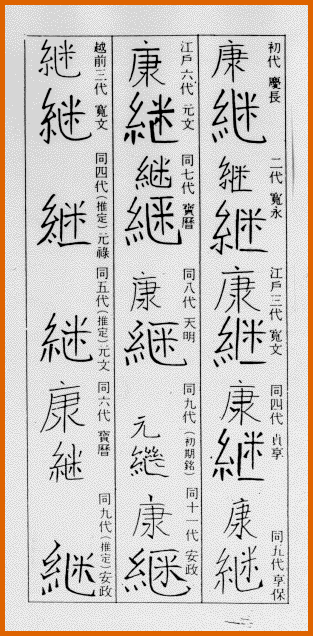 初代 慶長
康継
二代 寛永
継継
江戶三代 寛文
康継
同四代 貞享
康継
同五代 享保
康継
江戶六代 元文
康継
同七代 寶暦
継継
同八代 天明
康継
同九代(初期銘)
元継
同十一代 安政
康継
越前三代 寛文
継継
同四代(推定)元祿
継
同五代(推定)元文
継
同六代 寶暦
康継
同九代(推定)安政
継